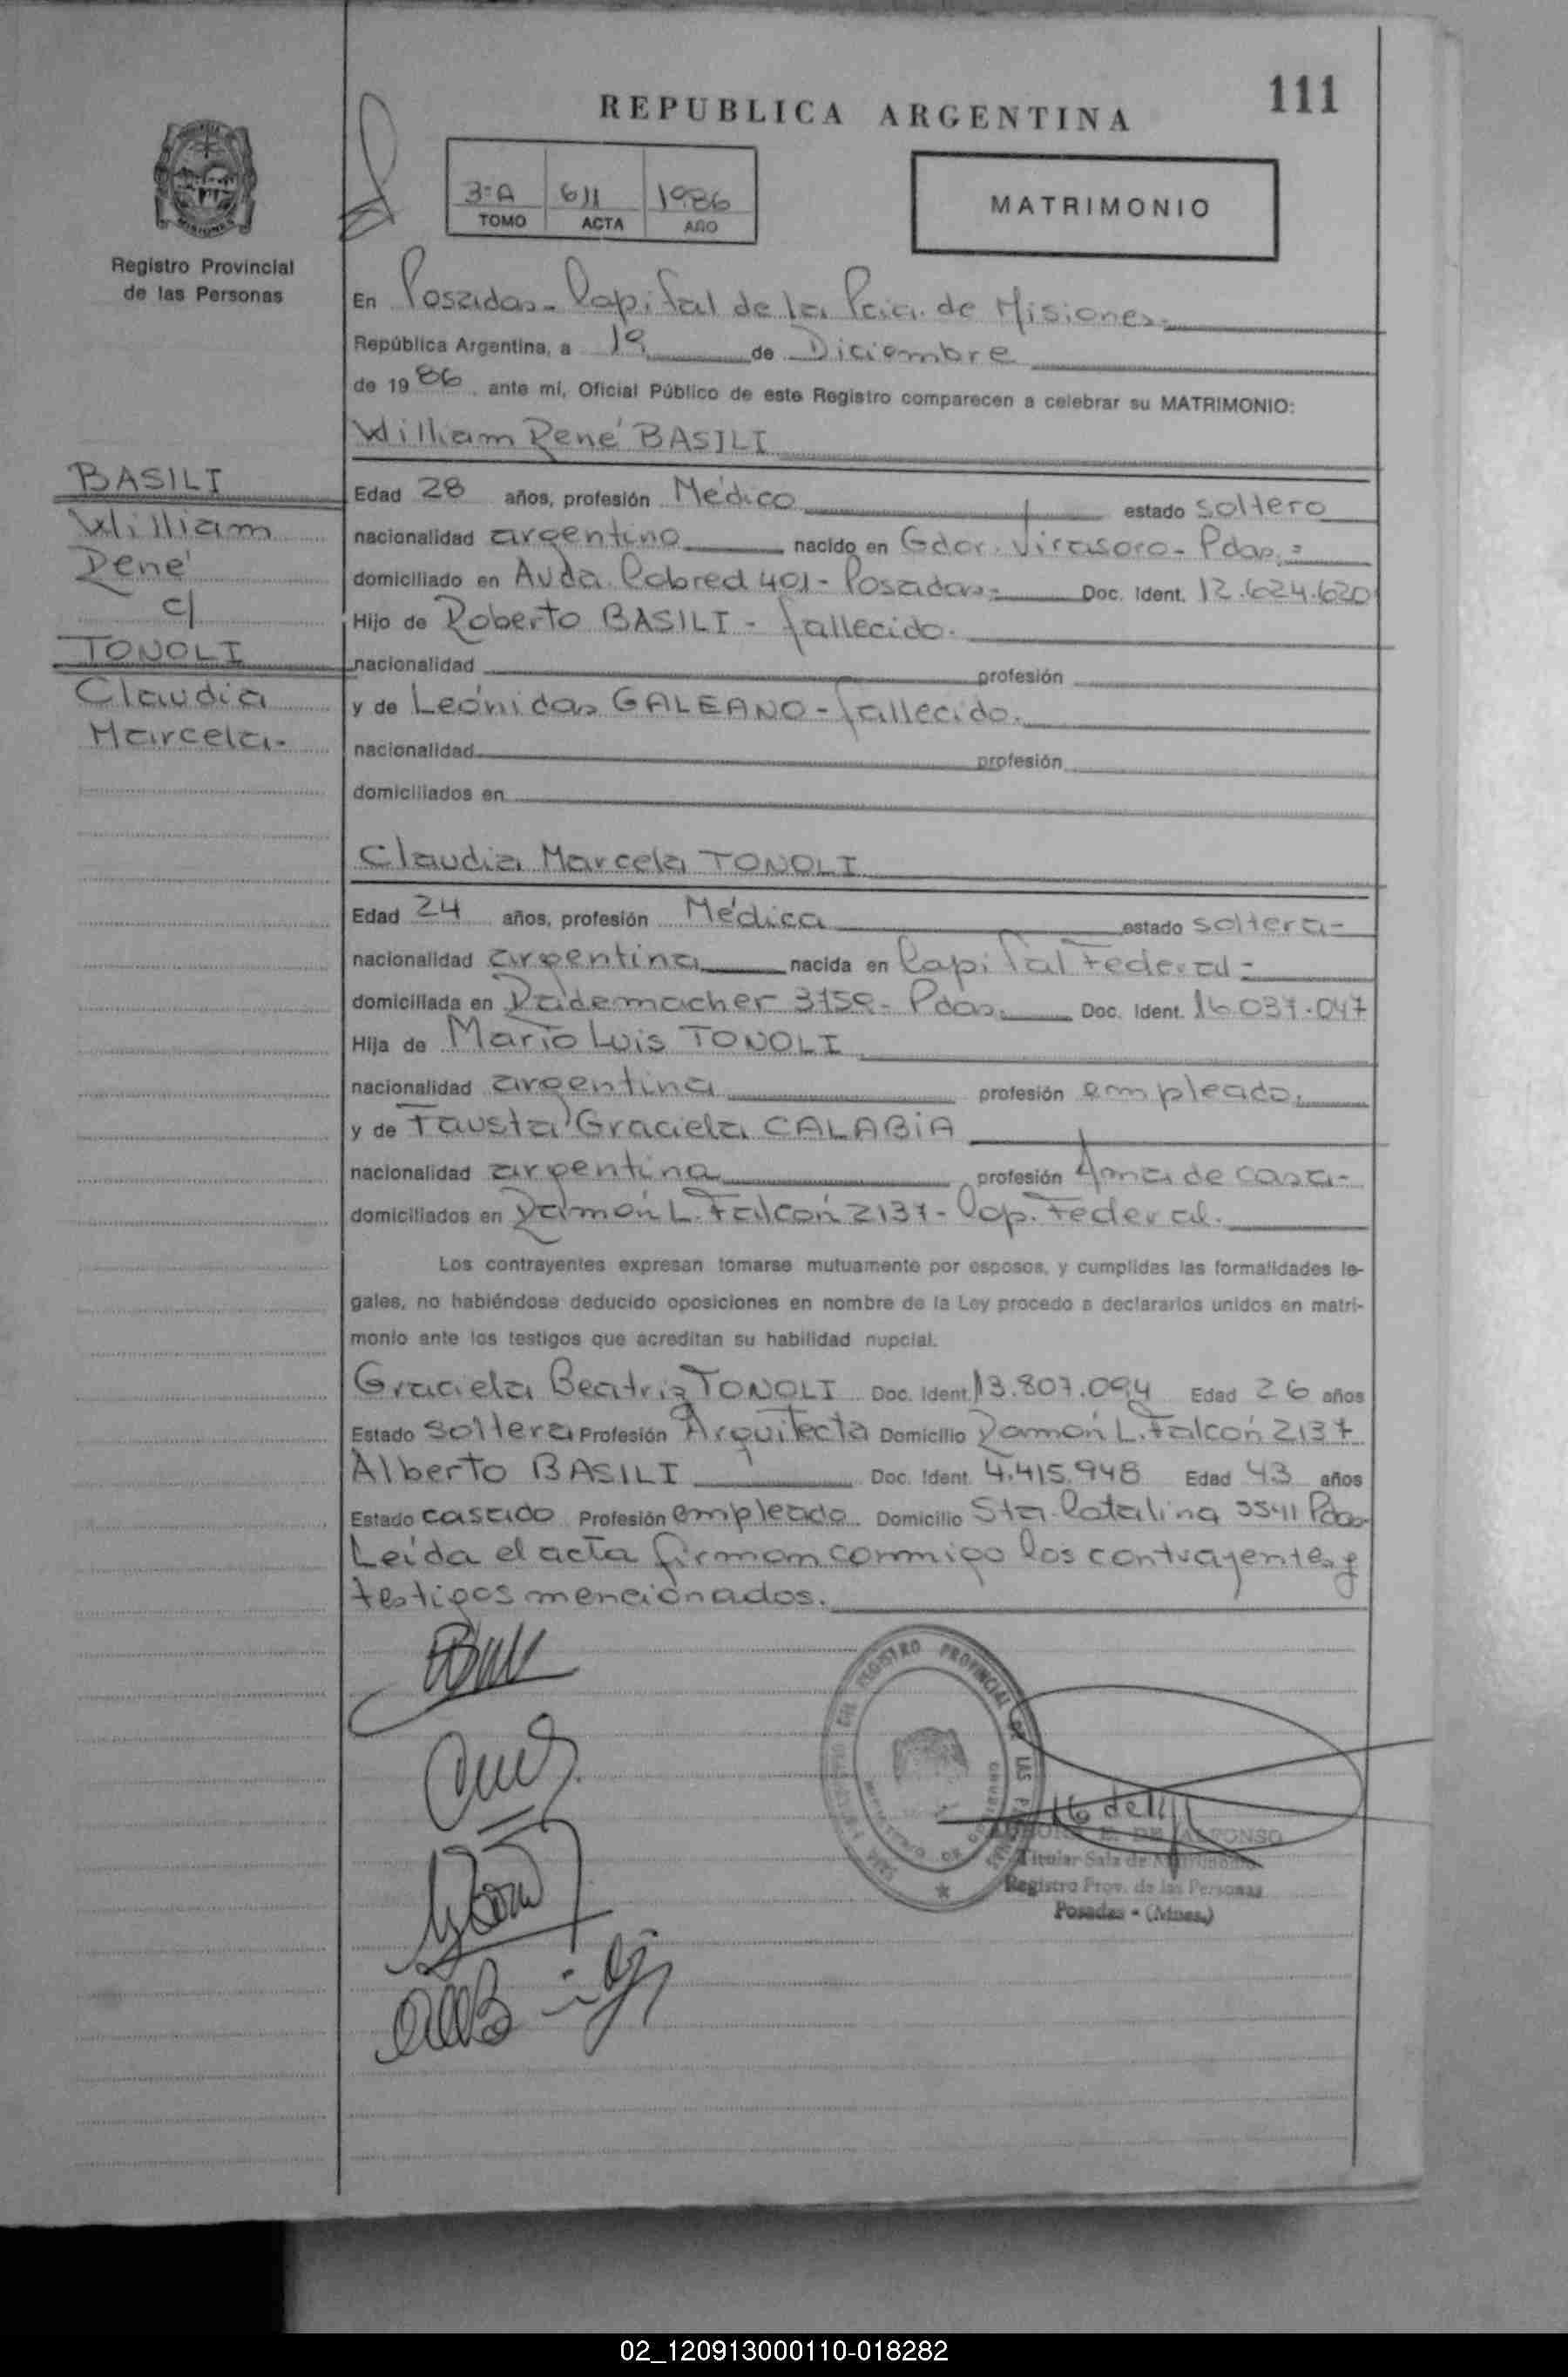 111
REPUBLICA ARGENTINA
3ºA 611 1986
TOMO ACTA AÑO
MATRIMONIO
Registro Provincial
de las Personas
En Posadas - Capital de la Pcia. de Misiones.
República Argentina, a 19 de Diciembre
de 1986, ante mí, Oficial Público de este Registro comparecen a celebrar su MATRIMONIO:
William René BASILI
BASILI
William
René
c/
TONOLI
Claudia
Marcela.
Edad 28 años, profesión Médico estado soltero
nacionalidad argentino nacido en Gdor. Virasoro - Pdas.=
domiciliado en Avda. Cabred 401 - Posadas= Doc. Ident. 12.624.620
Hijo de Roberto BASILI - fallecido.
nacionalidad profesión
y de Leónidas GALEANO - fallecido.
nacionalidad profesión
domiciliados en
Claudia Marcela TONOLI
Edad 24 años, profesión Médica estado soltera-
nacionalidad argentina nacida en Capital Federal=
domiciliada en Rademacher 3159 - Pdas. Doc. Ident. 16.037.047
Hija de Mario Luis TONOLI
nacionalidad argentina profesión empleado.
y de Fausta Graciela CALABIA
nacionalidad argentina profesión Ama de casa-
domiciliados en Ramón L. Falcón 2137 - Cap. Federal.
Los contrayentes expresan tomarse mutuamente por esposos, y cumplidas las formalidades le-
gales, no habiéndose deducido oposiciones en nombre de la Ley procedo a declararlos unidos en matri-
monio ante los testigos que acreditan su habilidad nupcial.
Graciela Beatriz TONOLI Doc. Ident. 13.807.094 Edad 26 años
Estado soltera Profesión Arquitecta Domicilio Ramón L. Falcón 2137
Alberto BASILI Doc. Ident. 4.415.948 Edad 43 años
Estado casado Profesión empleado Domicilio Sta. Catalina 3541 Pdas.
Leída el acta firman conmigo los contrayentes y
testigos mencionados.
REGISTRO PROVINCIAL DE LAS
E. DE ALFONSO
Titular Sala de Matrimonio
Registro Prov. de las Personas
Posadas - (Mnes.)
02_120913000110-018282